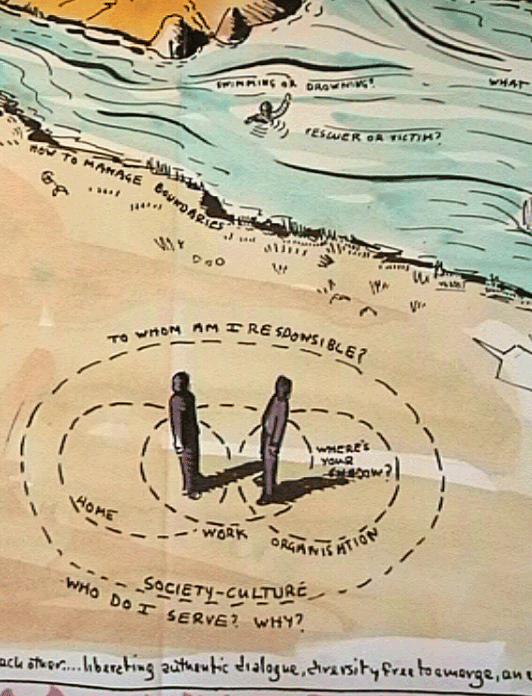 SWIMMING OR DROWNING?
WHAT
RESCUER OR VICTIM?
HOW TO MANAGE BOUNDARIES
TO WHOM AM I RESPONSIBLE?
WHERE'S
YOUR
SHADOW?
HOME
WORK
ORGANISATION
SOCIETY-CULTURE
WHO DO I SERVE? WHY?
each other.... liberating authentic dialogue, diversity free to emerge, an